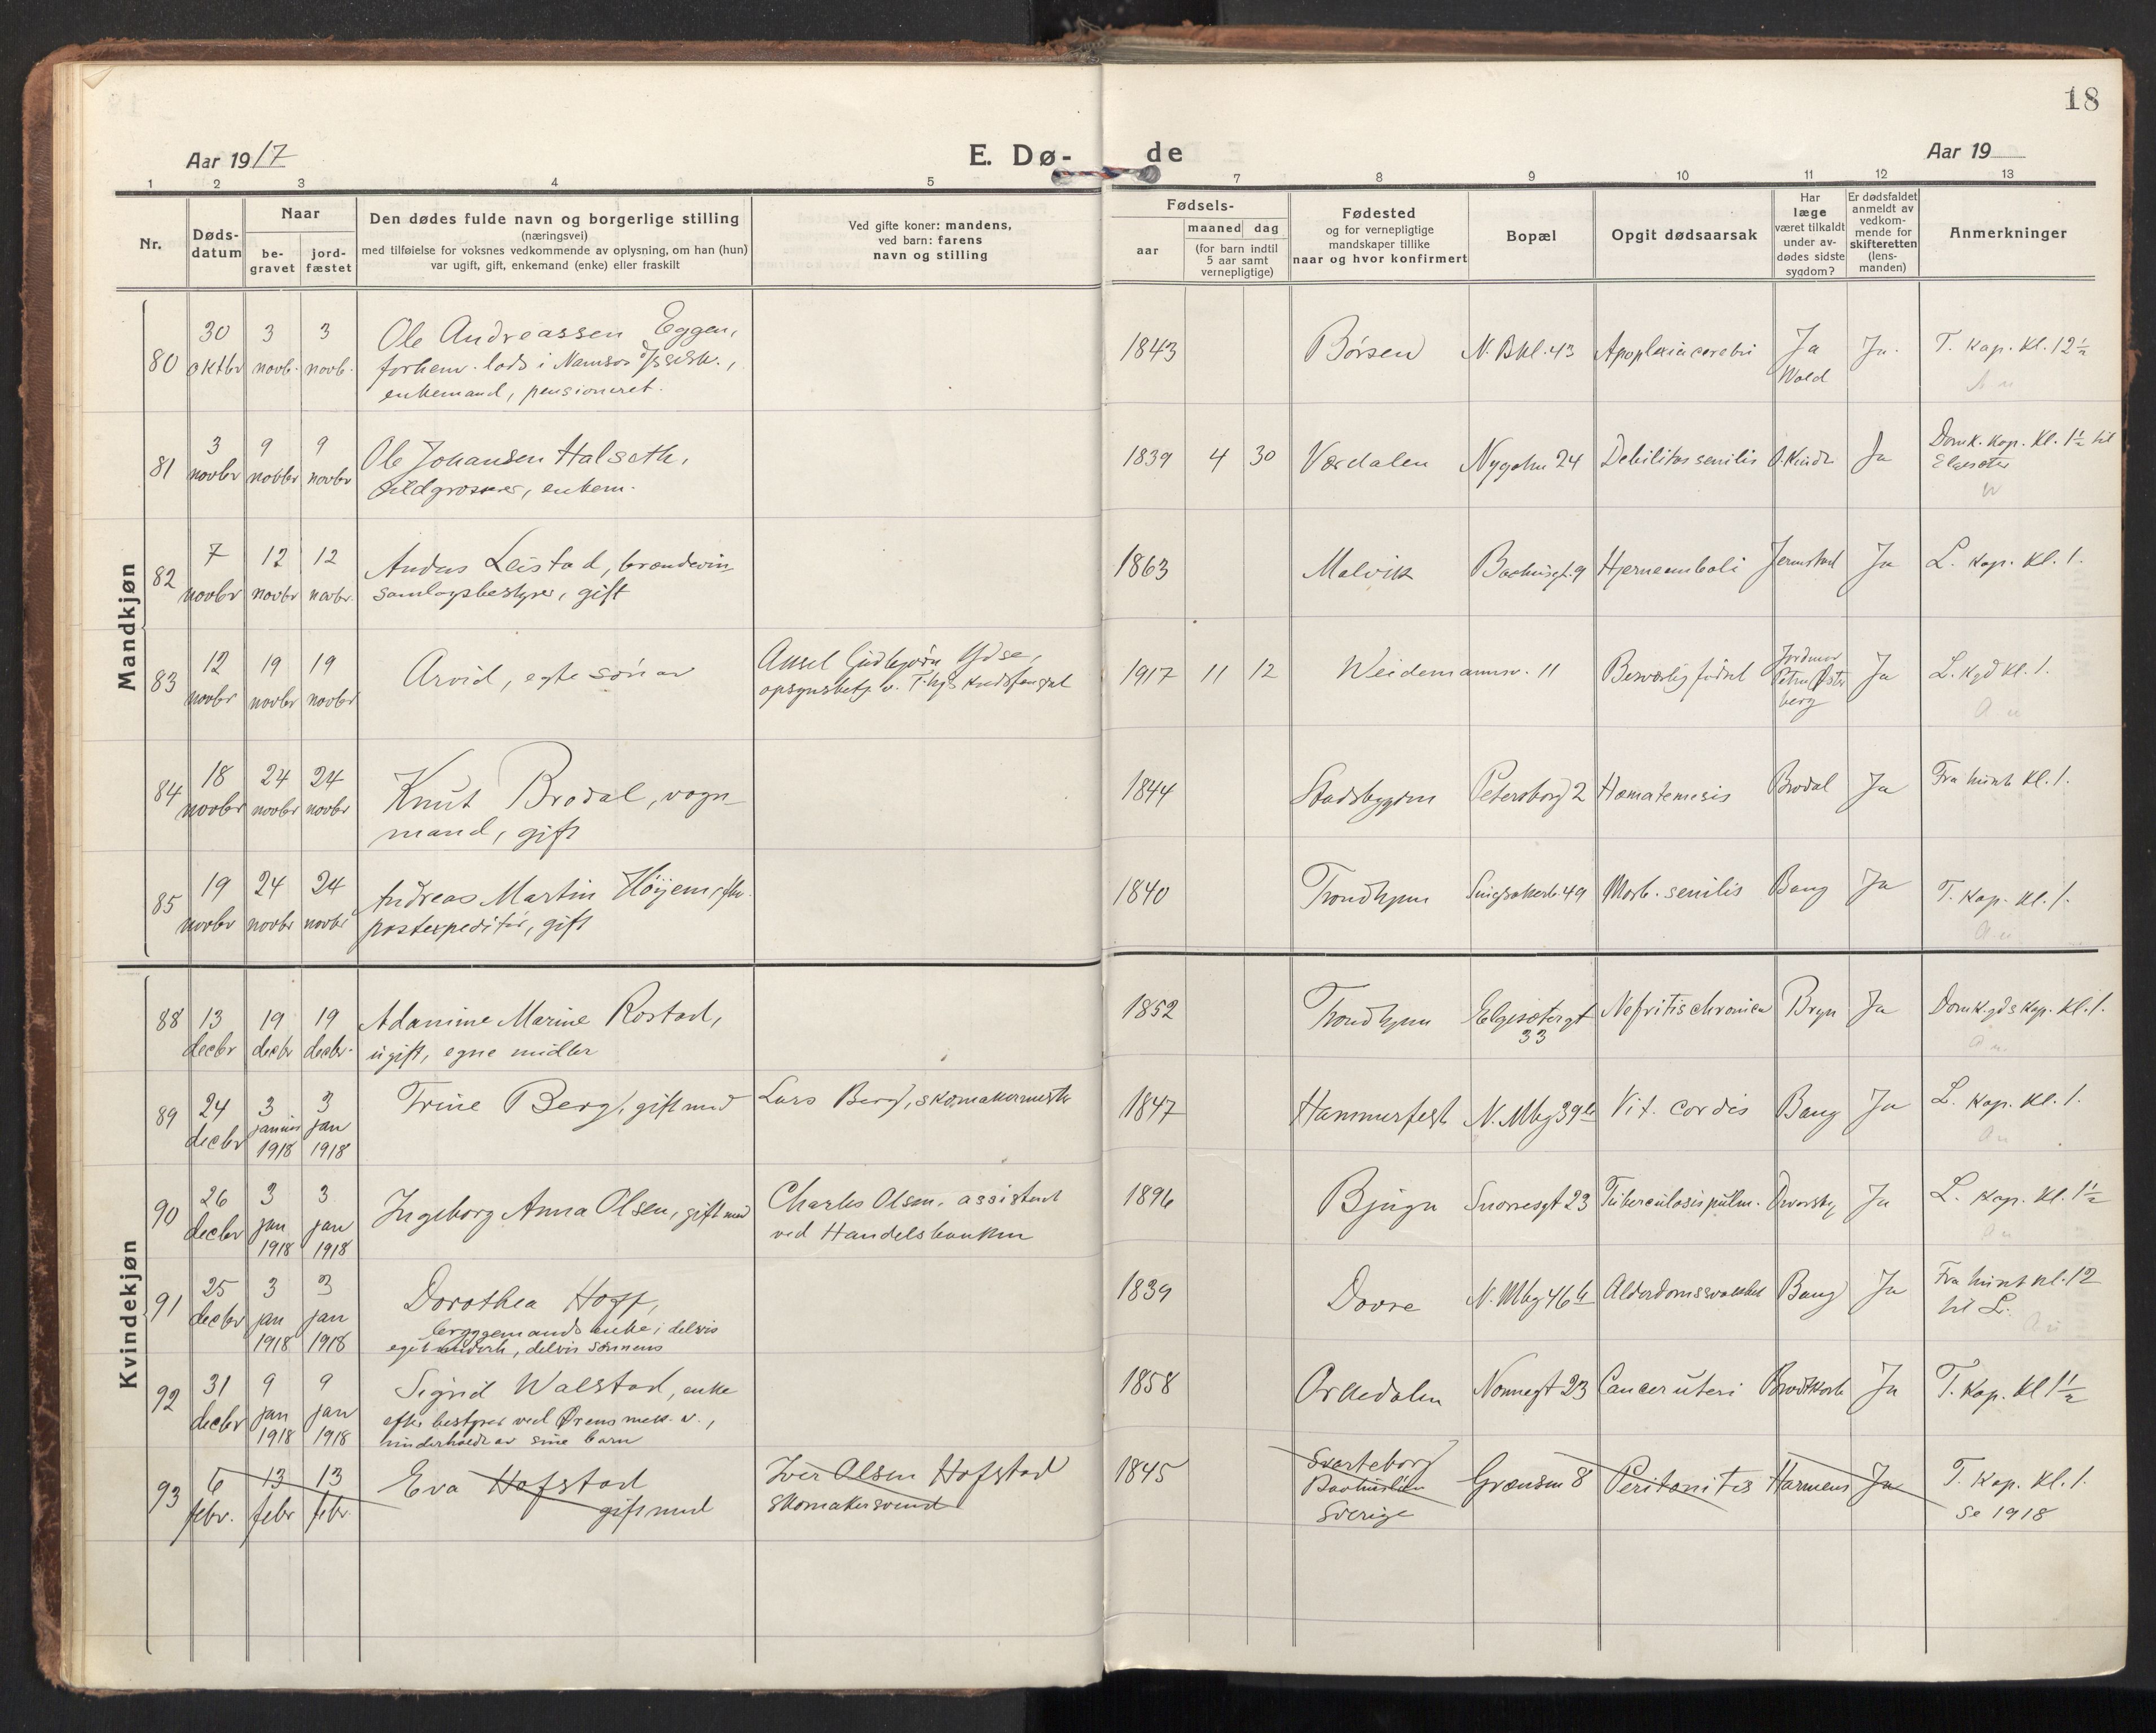 18
Aar 1917
E. Dø-
de
Aar 19
1 2 3 4 5 7 8 9 10 11 12 13
Nr.
Døds-
datum
Naar
be-
gravet
jord-
fæstet
Den dødes fulde navn og borgerlige stilling
(næringsvei)
med tilføielse for voksnes vedkommende av oplysning, om han (hun)
var ugift, gift, enkemand (enke) eller fraskilt
Ved gifte koner: mandens,
ved barn: farens
navn og stilling
Fødsels-
aar
maaned dag
(for barn indtil
5 aar samt
vernepligtige)
Fødested
og for vernepligtige
mandskaper tillike
naar og hvor konfirmert
Bopæl
Opgit dødsaarsak
Har
læge
været tilkaldt
under av-
dødes sidste
sygdom?
Er dødsfaldet
anmeldt av
vedkom-
mende for
skifteretten
(lens-
manden)
Anmerkninger
Mandkjøn
80 30 3 3 Ole Andreassen Eggen, 1843 Børsen N. Bkl. 43 Apoplexia cerebri Ja Ja. T. Kap. kl. 12½
oktbr novb. novb. forhenv. lods i Namsos
Wold
enkemand, pensioneret.
81 3 9 9 Ole Johansen Halseth, 1839 4 30 Værdalen Nygaten 24 Debilitas senilis Ja Domk. kap. kl. 1½ til
novbr novbr novbr sildgrosserer, enkem. Elgeseter
82 7 12 12 Anders Leistad, brændevin 1863 Malvik Bakhusgt. 9 Hjerneemboli Jermstad Ja L. kap. kl. 1.
novbr novbr novbr. samlagsbestyrer, gift
83 12 19 19 Arvid, egte søn av Aksel Gudbjørn Ydse, 1917 11 12 Weidemannsv. 11 Besværlig fødsel Jordmor Ja L. kgd kl. 1.
novbr novbr novbr opsynsbetj. v. T.hjs Kredsfengsel
Petra Øster
berg
84 18 24 24 Knut Brodal, vogn- 1844 Stadsbygden Petersborg 2 Hæmatemesis Brodal Ja Fra huset kl. 1.
novbr novbr novbr mand, gift
85 19 24 24 Andreas Martin Höyem, fhv. 1840 Trondhjem Singsakerb. 49 Morb. senilis Bang Ja T. Kap. kl. 1.
novbr novbr novbr postexpeditør, gift
Kvindekjøn
88 13 19 19 Adamine Marine Rostad, 1852 Trondhjem Elgesætergt Nefritis chronica Bryn Ja Domk.gds kap. kl. 1.
decbr decbr decbr. ugift, egne midler 33
89 24 3 3 Trine Berg, gift med Lars Berg, skomakermester 1847 Hammerfest N. Mbg 39b Vit. cordis Bang Ja L. kap. kl. 1.
decbr januar jan
1918 1918
90 26 3 3 Ingeborg Anna Olsen, gift med Charles Olsen, assistent 1896 Bjugn Snorresgt 23 Tuberculosis pulm. Dworsky Ja L. kap. kl. 1½
decbr jan jan ved Handelsbanken
1918 1918
91 25 3 3 Dorothea Hoff, 1839 Dovre N. Mbg 46b Alderdomssvakhet Bang Ja Fra huset kl. 12
decbr jan jan bryggemands enke; delvis til L.
1918 1918 eget underh, delvis sønnens
92 31 9 9 Sigrid Walstad, enke 1858 Orkedalen Nonnegt 23 Cancer uteri Brodtkorb Ja T. Kap. kl 1½
decbr jan jan efter bestyrer ved Ørens mek. v.,
1918 1918 underholdt av sine barn
93 6 13 13 Eva Hofstad Iver Olsen Hofstad 1845 Svarteborg Grænsen 8 Peritonitis Harmens Ja T. Kap. kl. 1.
febr. febr febr. gift med skomakersvend Baahuslän
Sverige se 1918